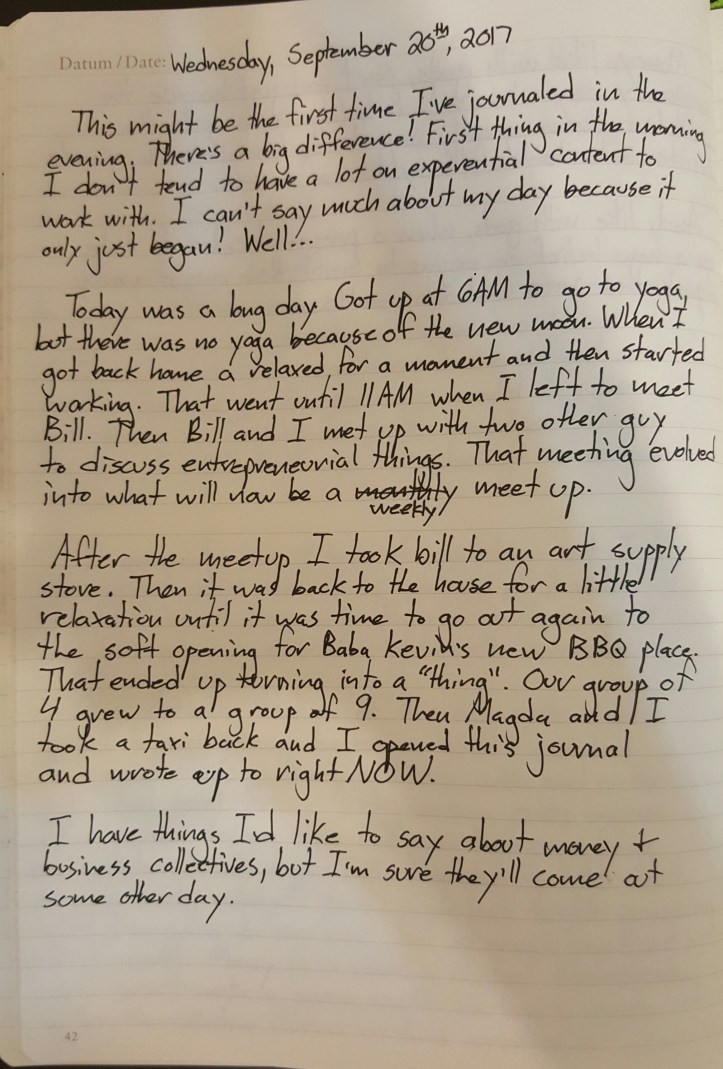 Datum / Date: Wednesday, September 20th, 2017
This might be the first time I've journaled in the
evening. There's a big difference! First thing in the morning
I don't tend to have a lot on experential content to
work with. I can't say much about my day because it
only just began! Well!...
Today was a long day. Got up at 6AM to go to yoga,
but there was no yoga because of the new moon. When I
got back home a relaxed for a moment and then started
working. That went until 11AM when I left to meet
Bill. Then Bill and I met up with two other guy
to discuss entrepreneurial things. That meeting evolved
into what will now be a monthly meet up.
weekly
After the meetup I took bill to an art supply
store. Then it was back to the house for a little
relaxation until it was time to go out again to
the soft opening for Baba Kevin's new BBQ place.
That ended up turning into a "thing". Our group of
4 grew to a group of 9. Then Magda and I
took a taxi back and I opened this journal
and wrote up to right NOW.
I have things I'd like to say about money +
business collectives, but I'm sure they'll come out
some other day.
42